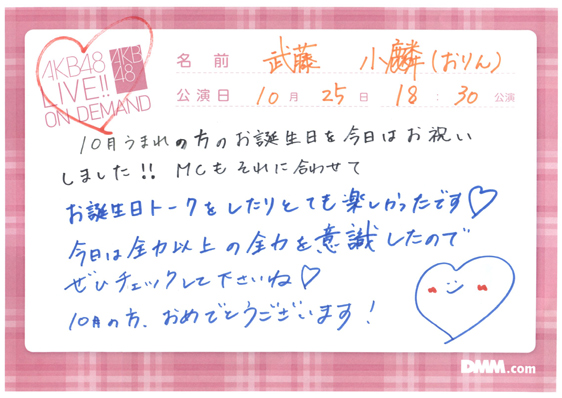 AKB48
LIVE!!
ON DEMAND
AKB
48
名前 武藤 小麟(おりん)
公演日 10月 25日 18:30公演
10月うまれの方のお誕生日を今日はお祝い
しました!! MCもそれに合わせて
お誕生日トークをしたりとても楽しかったです♡
今日は全力以上の全力を意識したので
ぜひチェックして下さいね♡
10月の方、おめでとうございます!
DMM.com